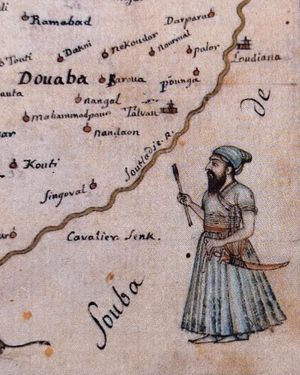 Ramabad
Darparao
Touti
Dakni
nekoudar
nourmal
palor
Loudiana
Douaba
Karoua
p'ounga
auta
nangal
mahammadpour
Talvan
nandaon
ar
Kouti
Singoval
de
Cavalier Senk.
Souba